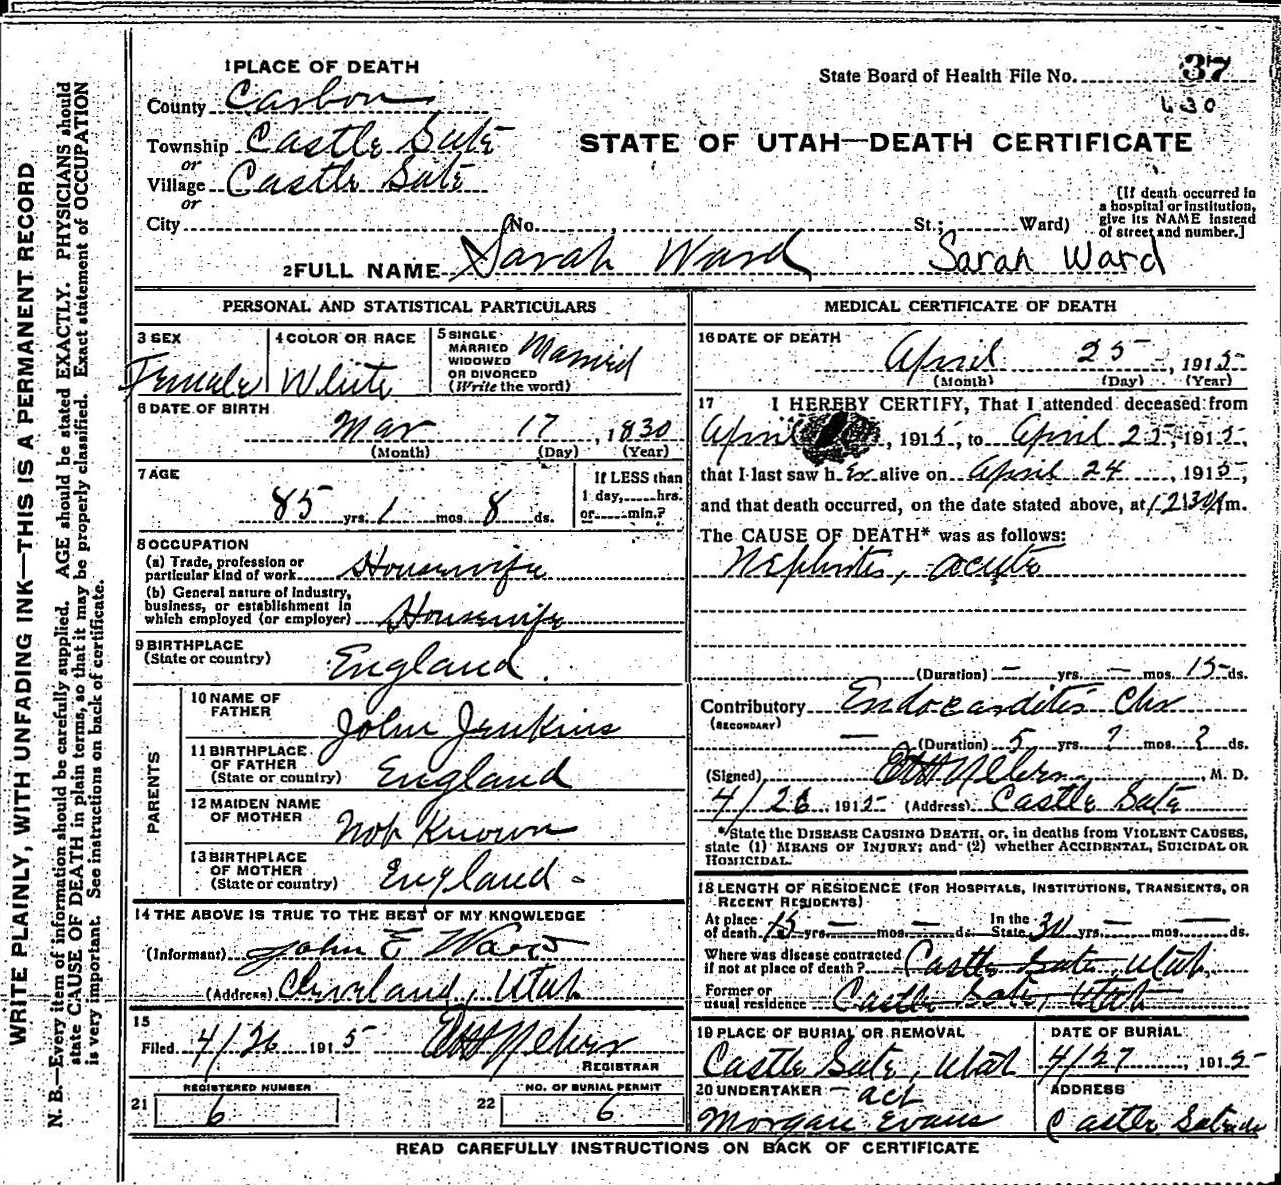 WRITE PLAINLY, WITH UNFADING INK—THIS IS A PERMANENT RECORD
N. B.—Every item of information should be carefully supplied. AGE should be stated EXACTLY. PHYSICIANS should
state CAUSE OF DEATH in plain terms, so that it may be properly classified. Exact statement of OCCUPATION
is very important. See instructions on back of certificate.
1 PLACE OF DEATH
State Board of Health File No. 37
630
County Carbon
STATE OF UTAH—DEATH CERTIFICATE
Township Castle Gate
or
Village Castle Gate
or
City No. St.; Ward)
[If death occurred in
a hospital or institution,
give its NAME instead
of street and number.]
2 FULL NAME Sarah Ward Sarah Ward
PERSONAL AND STATISTICAL PARTICULARS
3 SEX Female
4 COLOR OR RACE White
5 SINGLE
MARRIED
WIDOWED
OR DIVORCED
(Write the word) Married
6 DATE OF BIRTH
Mar 17, 1830
(Month) (Day) (Year)
7 AGE
85 yrs. 1 mos. 8 ds.
If LESS than
1 day, hrs.
or min.?
8 OCCUPATION
(a) Trade, profession or
particular kind of work Housewife
(b) General nature of industry,
business, or establishment in
which employed (or employer) Housewife
9 BIRTHPLACE
(State or country) England.
PARENTS
10 NAME OF
FATHER John Jenkins
11 BIRTHPLACE
OF FATHER
(State or country) England
12 MAIDEN NAME
OF MOTHER Not Known
13 BIRTHPLACE
OF MOTHER
(State or country) England -
14 THE ABOVE IS TRUE TO THE BEST OF MY KNOWLEDGE
(Informant) John E Ward
(Address) Cleveland, Utah
15
Filed 4/26 1915
REGISTRAR
REGISTERED NUMBER
21 6
NO. OF BURIAL PERMIT
22 6
MEDICAL CERTIFICATE OF DEATH
16 DATE OF DEATH
April 25, 1915
(Month) (Day) (Year)
17 I HEREBY CERTIFY, That I attended deceased from
April, 1915, to April 25, 1915,
that I last saw her alive on April 24, 1915,
and that death occurred, on the date stated above, at 12:30 A m.
The CAUSE OF DEATH* was as follows:
Nephritis, acute
(Duration) - yrs. - mos. 15 ds.
Contributory Endocarditis Chr
(SECONDARY)
(Duration) 5 yrs. ? mos. ? ds.
(Signed), M. D.
4/26 1915 (Address) Castle Gate
*State the DISEASE CAUSING DEATH, or, in deaths from VIOLENT CAUSES,
state (1) MEANS OF INJURY; and (2) whether ACCIDENTAL, SUICIDAL OR
HOMICIDAL.
18 LENGTH OF RESIDENCE (FOR HOSPITALS, INSTITUTIONS, TRANSIENTS, OR
RECENT RESIDENTS)
At place
of death 15 yrs. — mos. — ds. In the
State 30 yrs. — mos. — ds.
Where was disease contracted
if not at place of death? Castle Gate, Utah,
Former or
usual residence Castle Gate, Utah
19 PLACE OF BURIAL OR REMOVAL
Castle Gate, Utah
DATE OF BURIAL
4/27, 1915
20 UNDERTAKER — act
Morgan Evans
ADDRESS
Castle Gate
READ CAREFULLY INSTRUCTIONS ON BACK OF CERTIFICATE